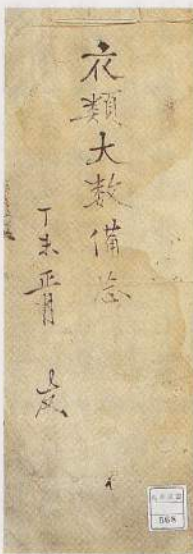 衣類大数備忘
丁未 正月
568